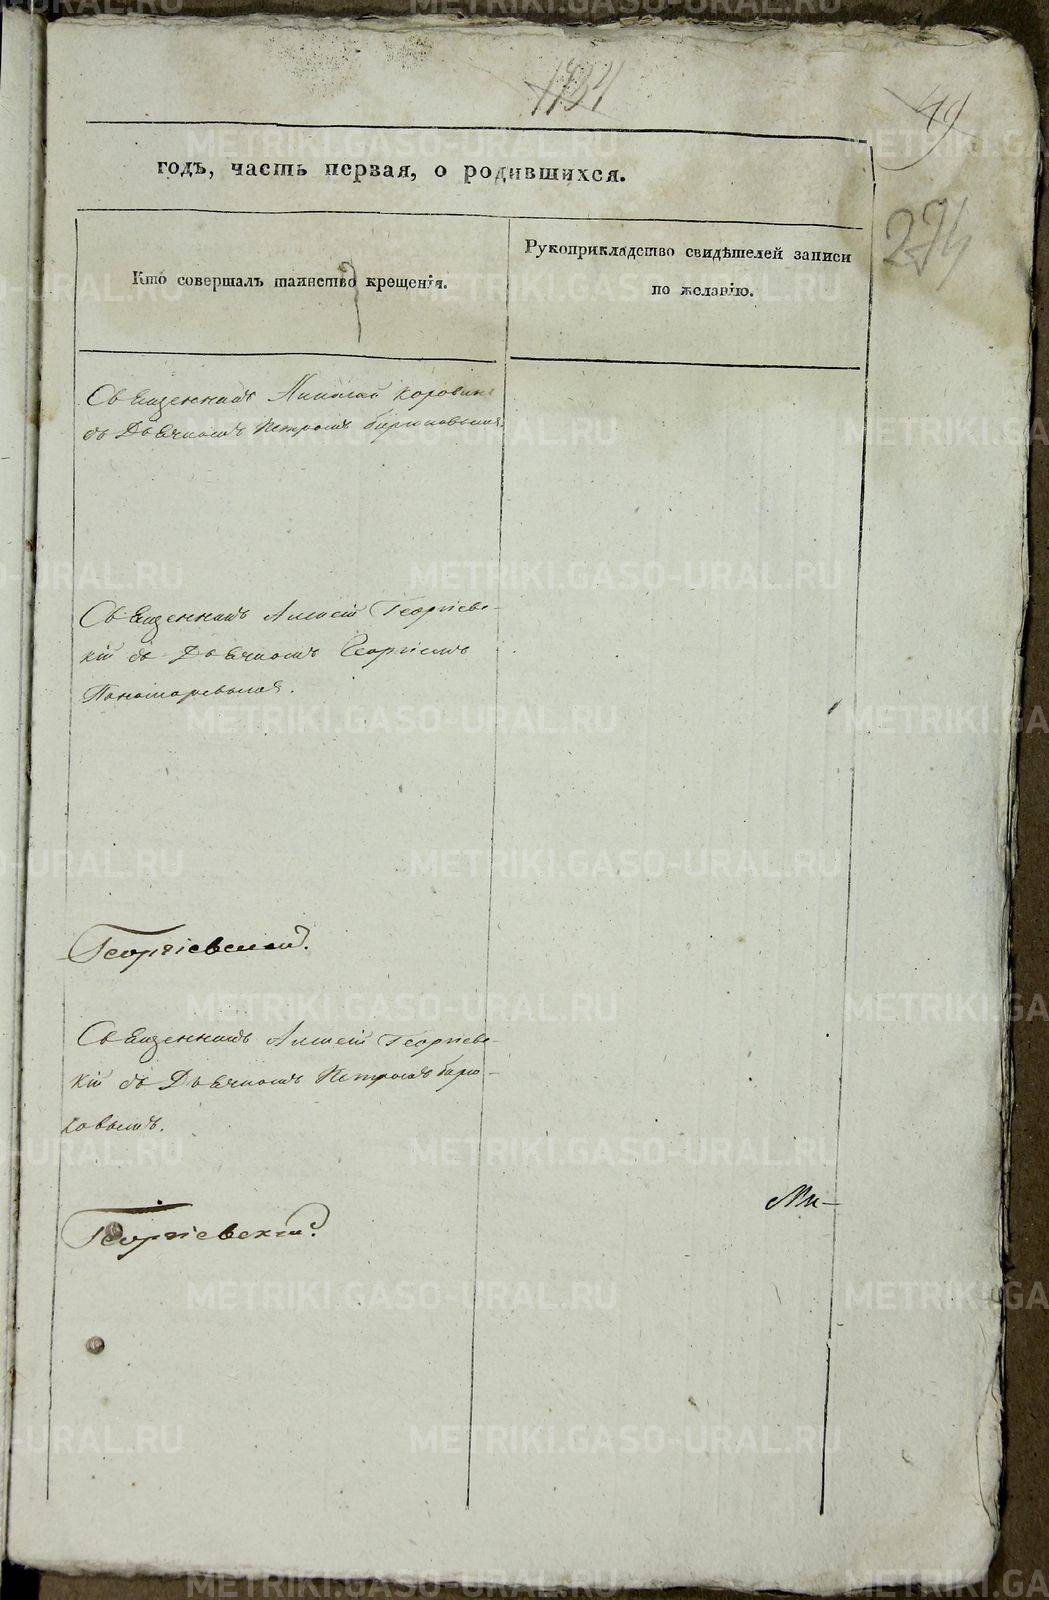 годъ, часть первая, о родившихся.
274
Кто совершалъ таинство крещенія.
Рукоприкладство свидѣтелей записи
по желанію.
Священникъ Николай Коровинъ
съ Дьячкомъ Петромъ Бирюковымъ
Священникъ Алексѣй Георгіевс-
кій съ Дьячкомъ Георгіемъ
Пономаревымъ.
Георгіевскій.
Священникъ Алексѣй Георгіевс-
кій съ Дьячкомъ Петромъ Бирю-
ковымъ.
Георгіевскій.
METRIKI.GASO-URAL.RU